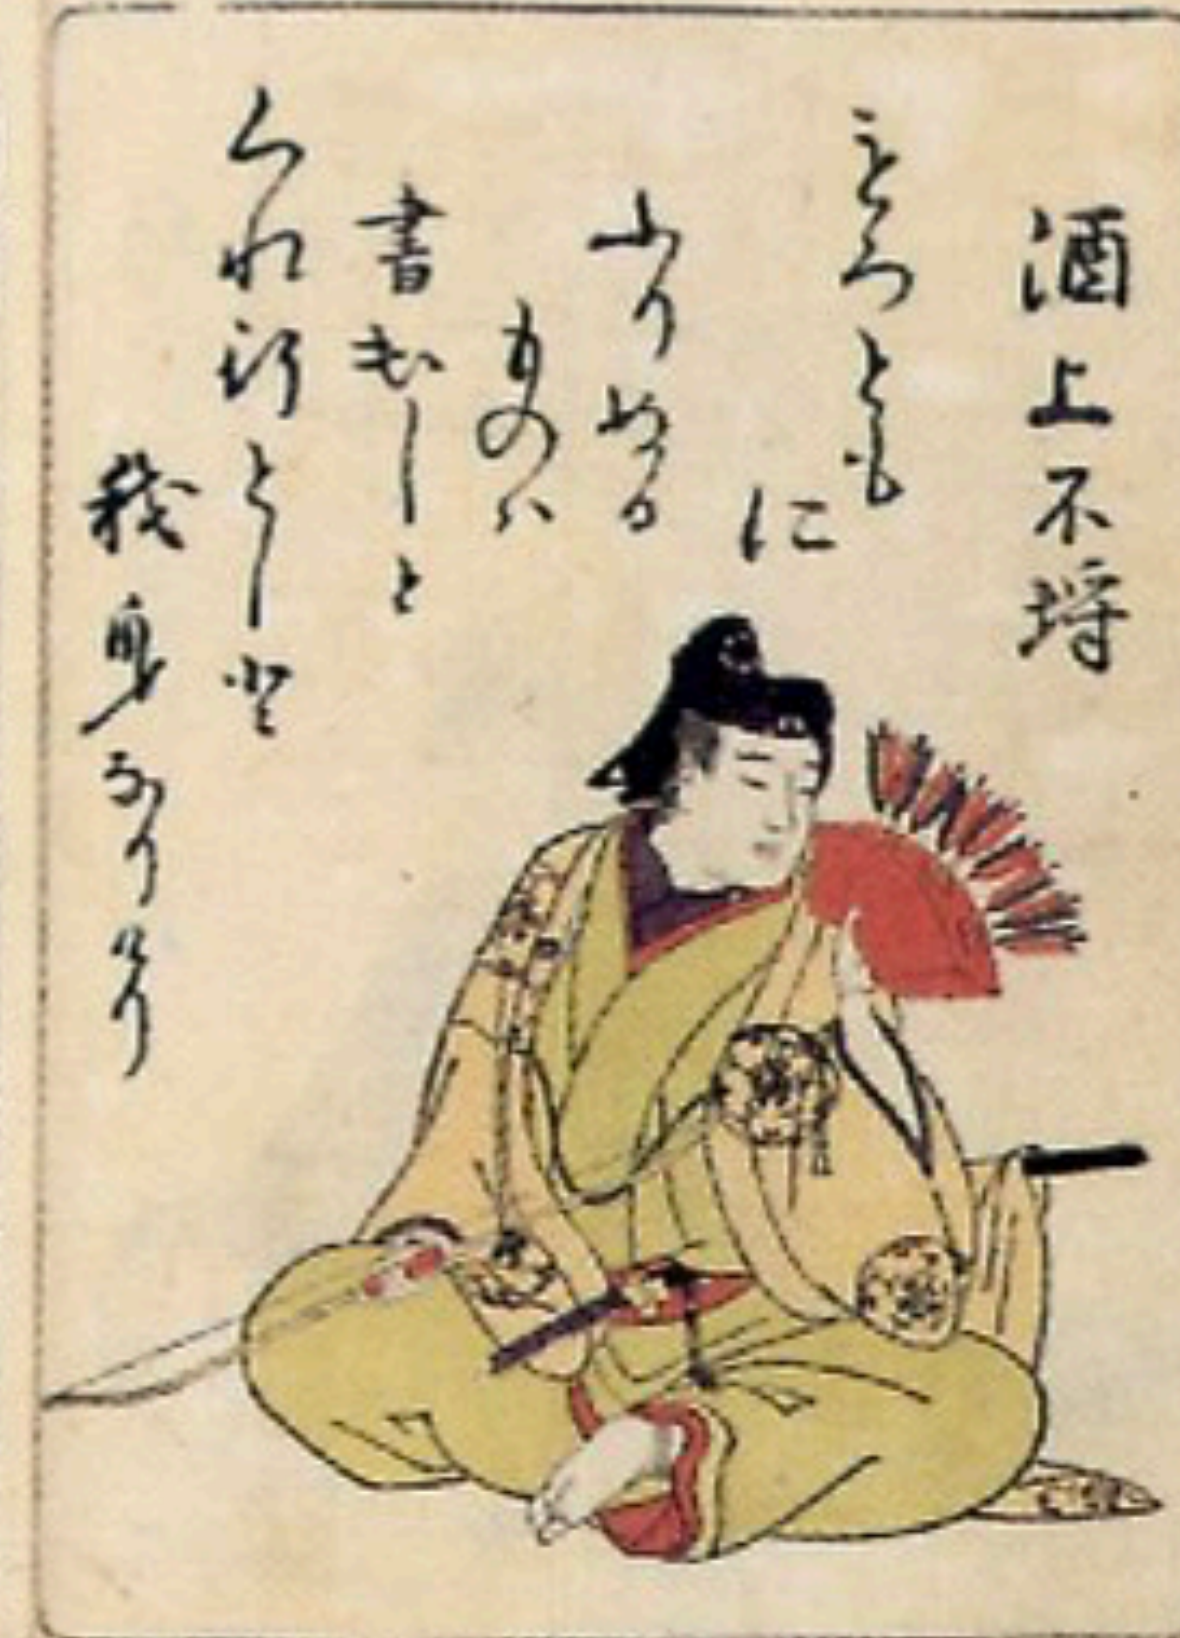 酒上不埒
もろとも
に
ふりぬる
ものハ
書出しと
くれ行としと
我身なりけり